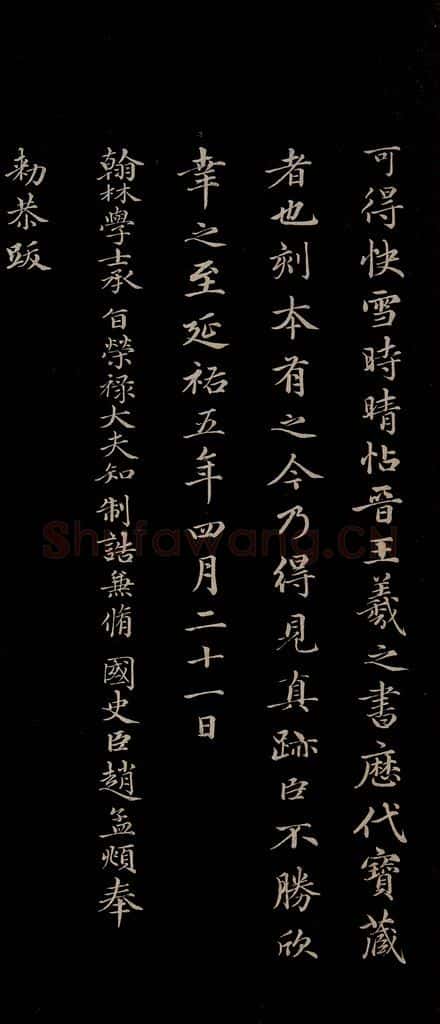 可得快雪時晴帖晉王羲之書歷代寶藏
者也刻本有之今乃得見真跡臣不勝欣
幸之至延祐五年四月二十一日
翰林學士承旨榮祿大夫知制誥兼脩國史臣趙孟頫奉
勑恭跋
Shufawang.CN